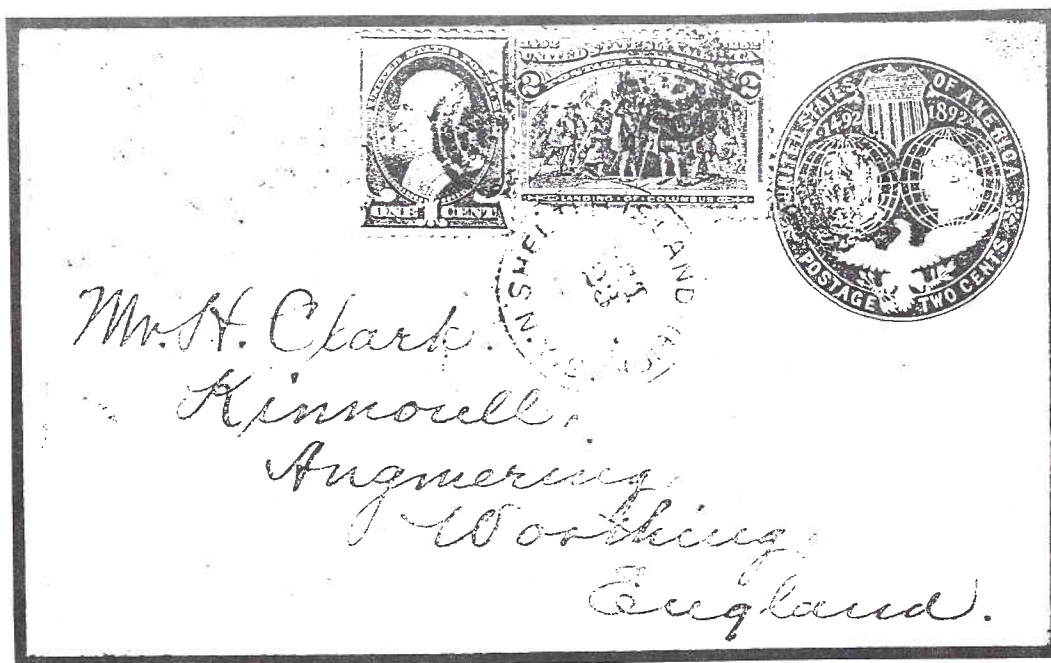 1492 1892
UNITED STATES OF AMERICA
2 2
LANDING OF COLUMBUS
ONE 1 CENT
UNITED STATES OF AMERICA
1492 1892
POSTAGE TWO CENTS
Mr. H. Clark.
Kinnoull,
Angmering,
Worthing,
England.